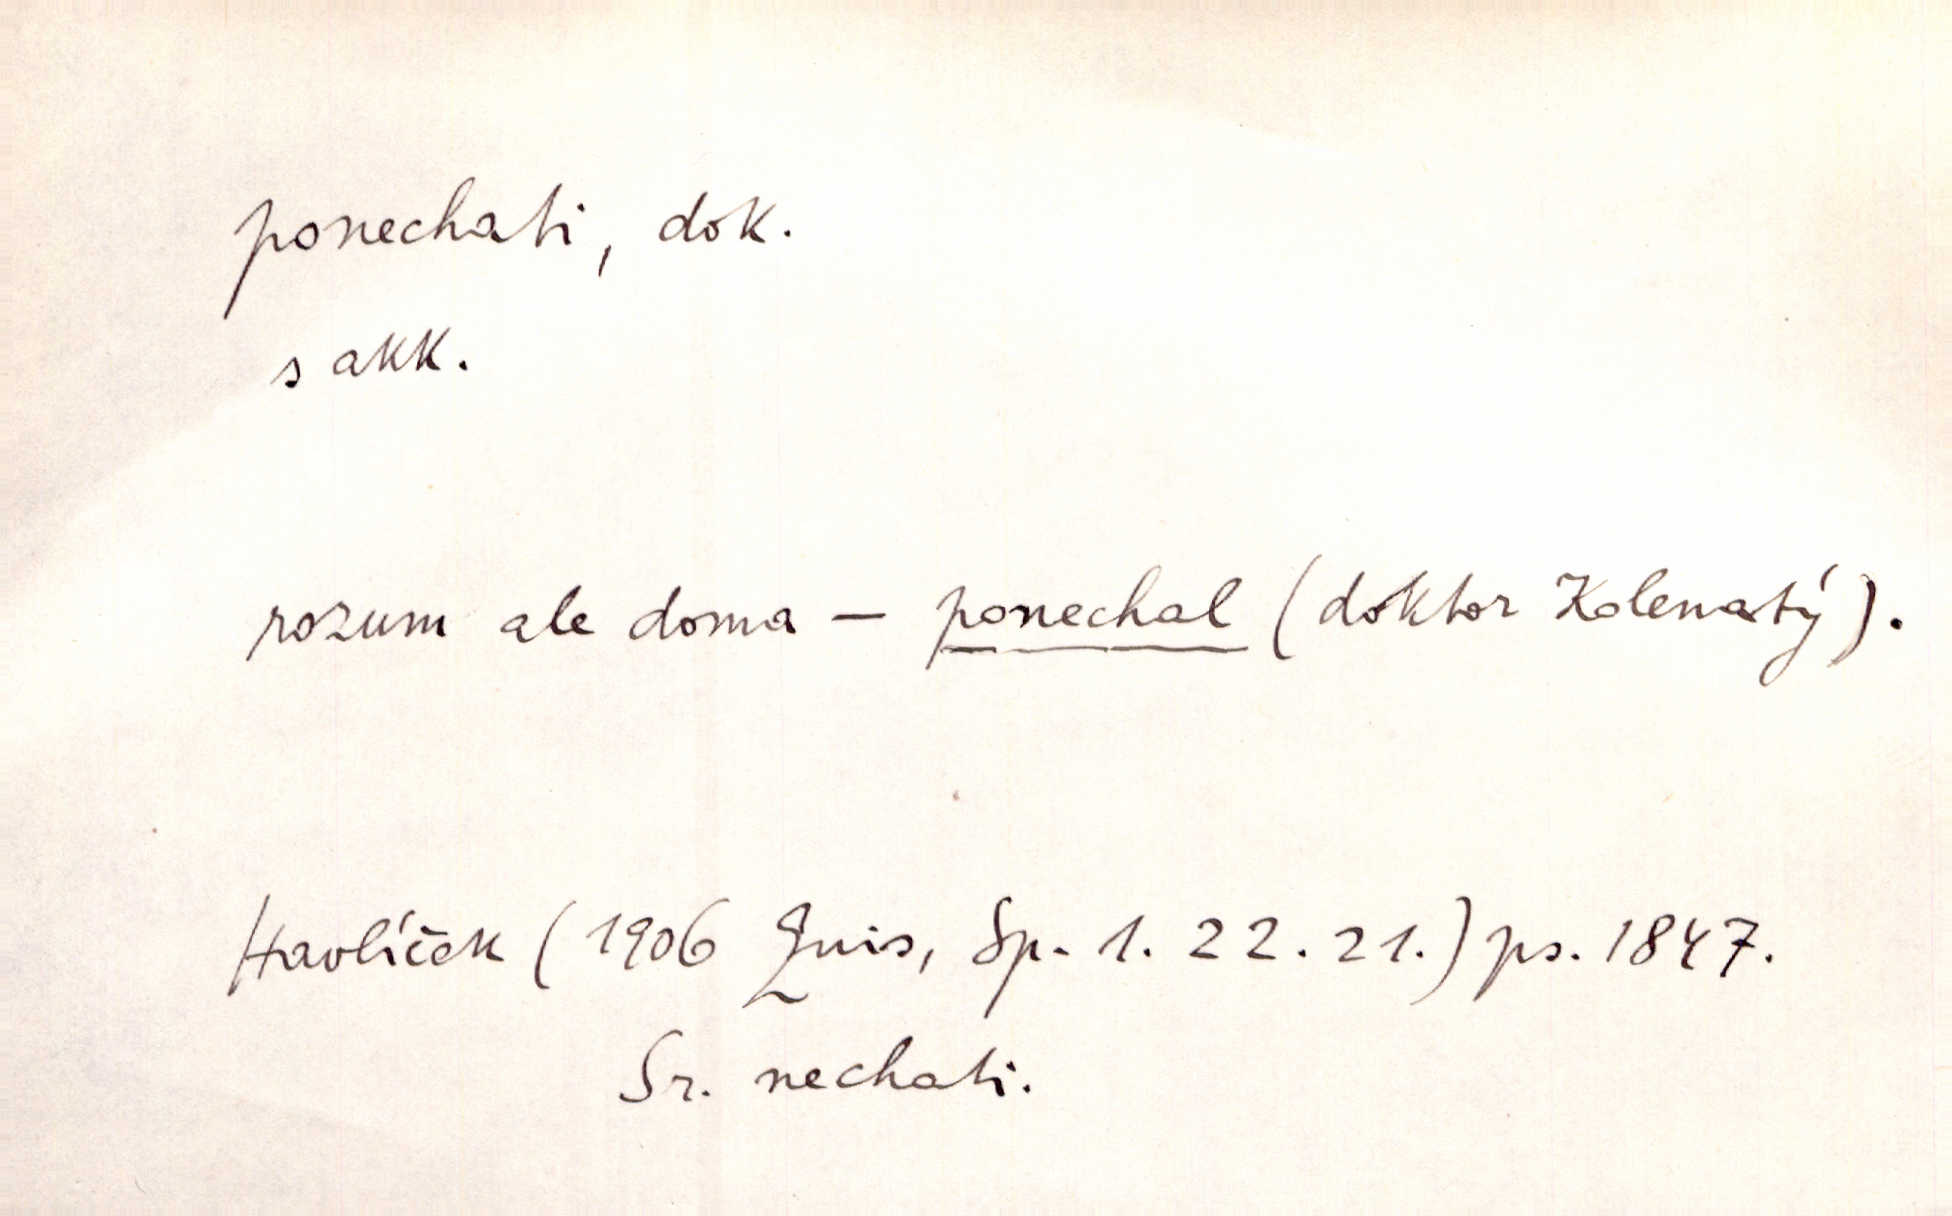 ponechati, dok.
s akk.
rozum ale doma — ponechal (doktor Kolenatý).
Havlíček (1906 Quis, Sp. 1. 22. 21.) ps. 1847.
Sr. nechati.